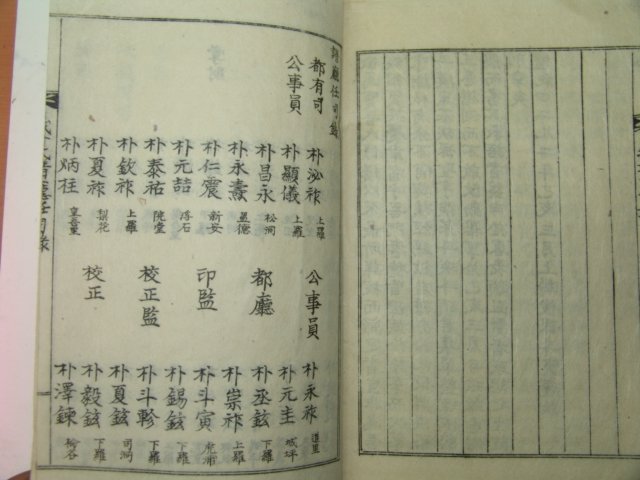 譜廳任司錄
都有司 朴泌祚 上羅
公事員 朴顯儀 上羅
朴昌永 松洞
朴永壽
朴仁震 新安
朴元喆 浮石
朴泰祐 院堂
朴欽祚 上羅
朴夏祚 梨花
朴炳柱
公事員 朴永祚 道里
朴元圭 城坪
都廳 朴丞鉉 下羅
朴崇祚 上羅
印監 朴斗寅 虎浦
朴錫鉉 下羅
校正監 朴斗軫 下羅
朴夏鉉 司洞
校正 朴毅鉉 下羅
朴澤鍊